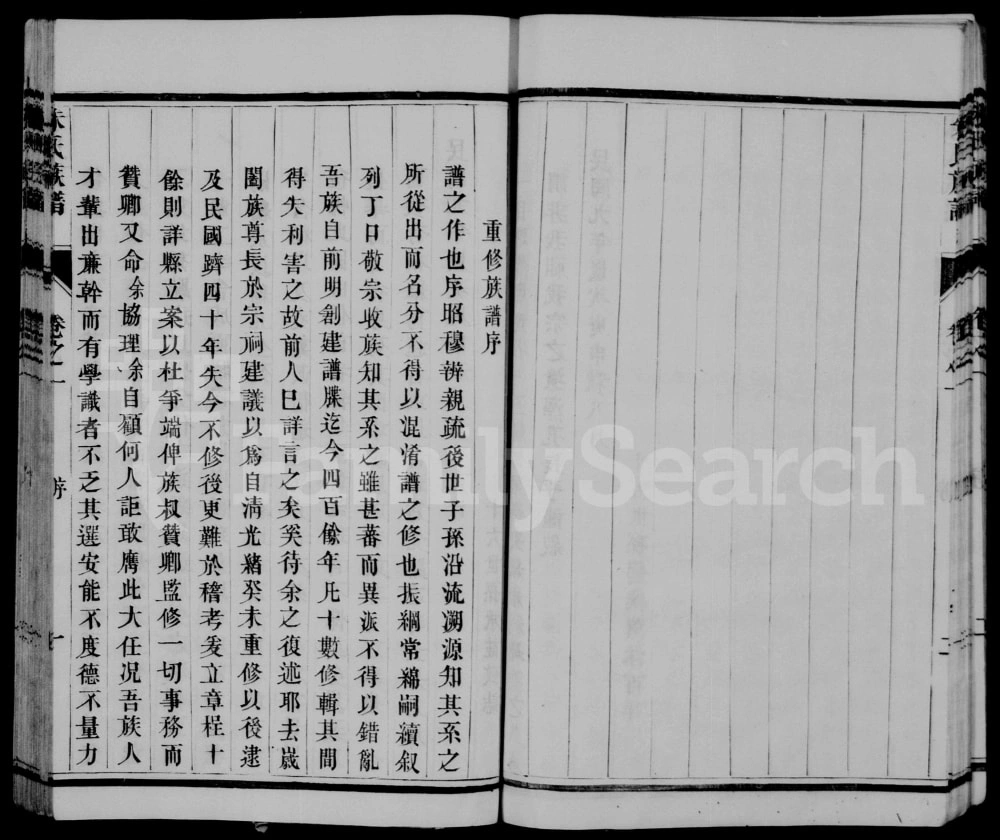 重修族譜序
譜之作也序昭穆辨親疏後世子孫沿流溯源知其系之
所從出而名分不得以混淆譜之修也振綱常綿嗣續叙
列丁口敬宗收族知其系之雖甚蕃而異派不得以錯亂
吾族自前明創建譜牒迄今四百餘年凡十數修輯其間
得失利害之故前人已詳言之矣奚待余之復述耶去歲
闔族尊長於宗祠建議以為自清光緒癸未重修以後逮
及民國躋四十年矢今不修後更難於稽考爰立章程十
餘則詳縣立案以杜爭端俾族叔贊卿監修一切事務而
贊卿又命余協理余自顧何人詎敢膺此大任况吾族人
才輩出廉幹而有學識者不乏其選安能不度德不量力
氏族譜
卷之一
序
一
FamilySearch